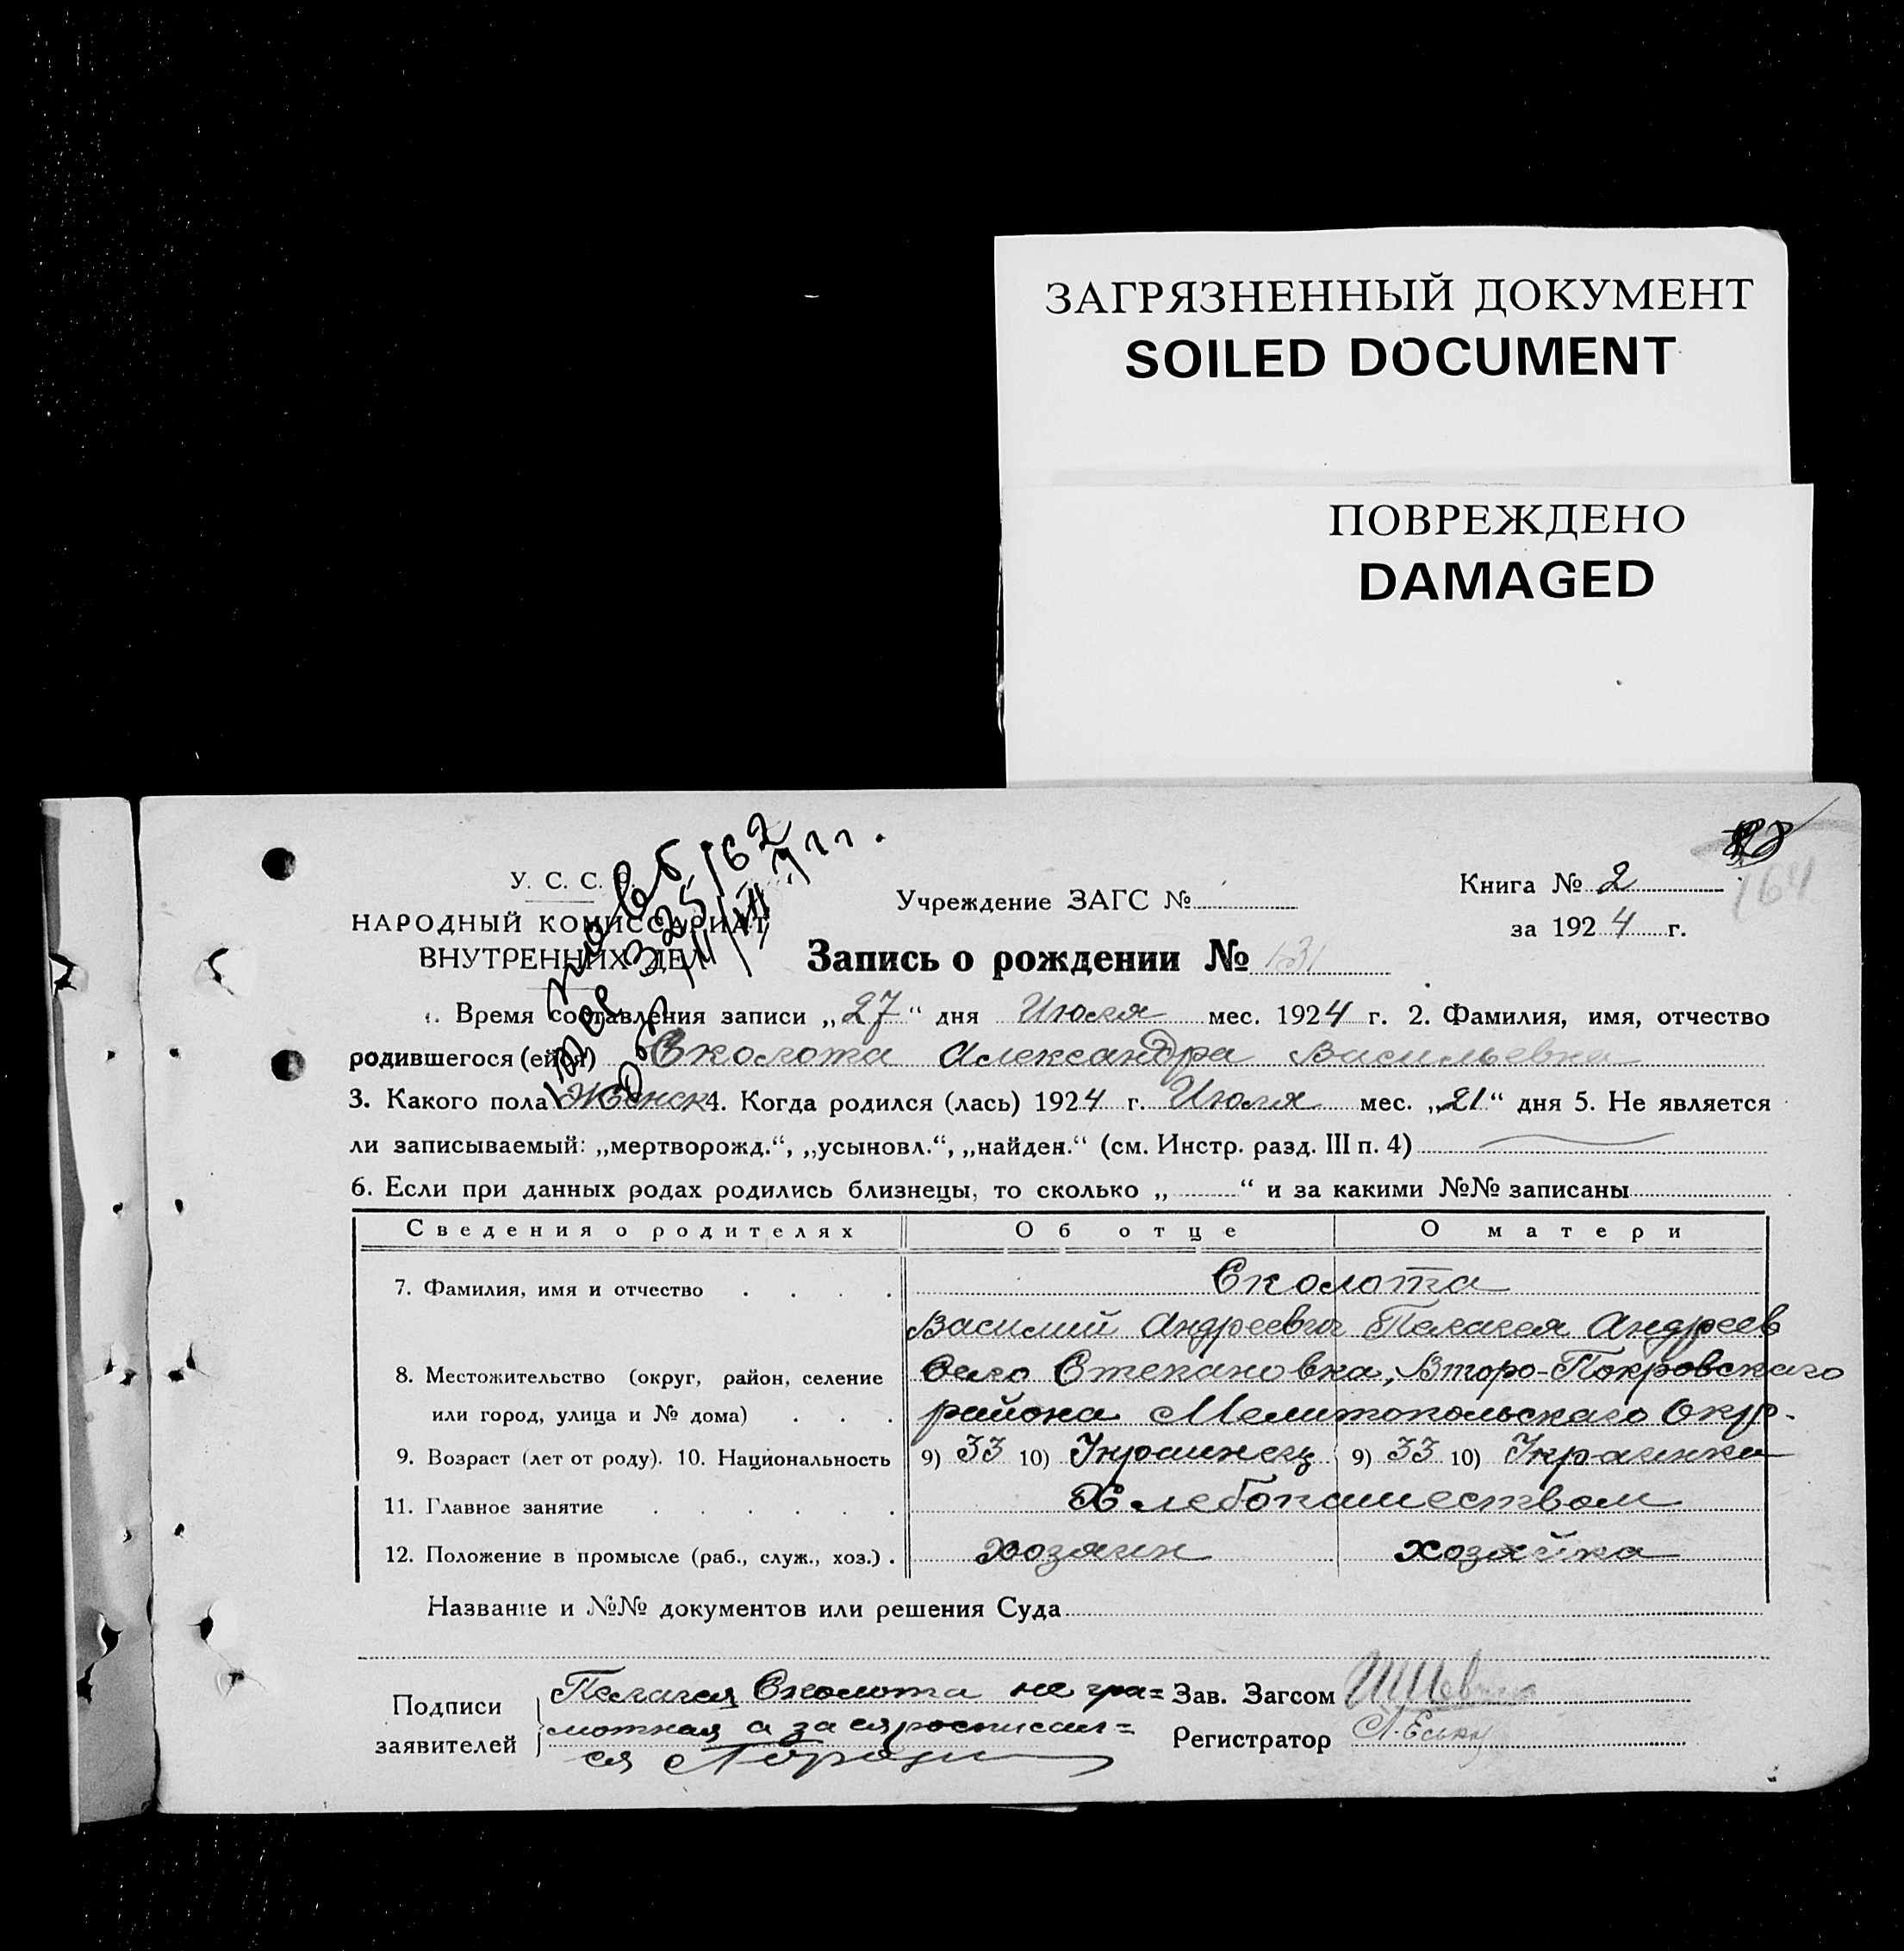 ЗАГРЯЗНЕННЫЙ ДОКУМЕНТ
SOILED DOCUMENT
ПОВРЕЖДЕНО
DAMAGED
164
У. С. С. Р.
НАРОДНЫЙ КОМИССАРИАТ
ВНУТРЕННИХ ДЕЛ
Учреждение ЗАГС №
Книга № 2
за 1924 г.
Запись о рождении № 131
Время составления записи „27“ дня Июля мес. 1924 г. 2. Фамилия, имя, отчество
родившегося (ейся) Сколота Александра Васильевна
3. Какого пола Женск 4. Когда родился (лась) 1924 г. Июля мес. „21“ дня 5. Не является
ли записываемый: „мертворожд.“, „усыновл.“, „найден.“ (см. Инстр. разд. III п. 4)
6. Если при данных родах родились близнецы, то сколько „ “ и за какими №№ записаны
Сведения о родителях Об отце О матери
7. Фамилия, имя и отчество Сколота
Василий Андреевич Пелагея Андреев
8. Местожительство (округ, район, селение село Степановка, Второ-Покровскаго
или город, улица и № дома) района Мелитопольскаго Окр.
9. Возраст (лет от роду). 10. Национальность 9) 33 10) Украинец 9) 33 10) Украинка
11. Главное занятие Хлебопашеством
12. Положение в промысле (раб., служ., хоз.) хозяин хозяйка
Название и №№ документов или решения Суда
Подписи заявителей Пелагея Сколота не гра=
мотная а за ея росписал=
ся
Зав. Загсом
Регистратор